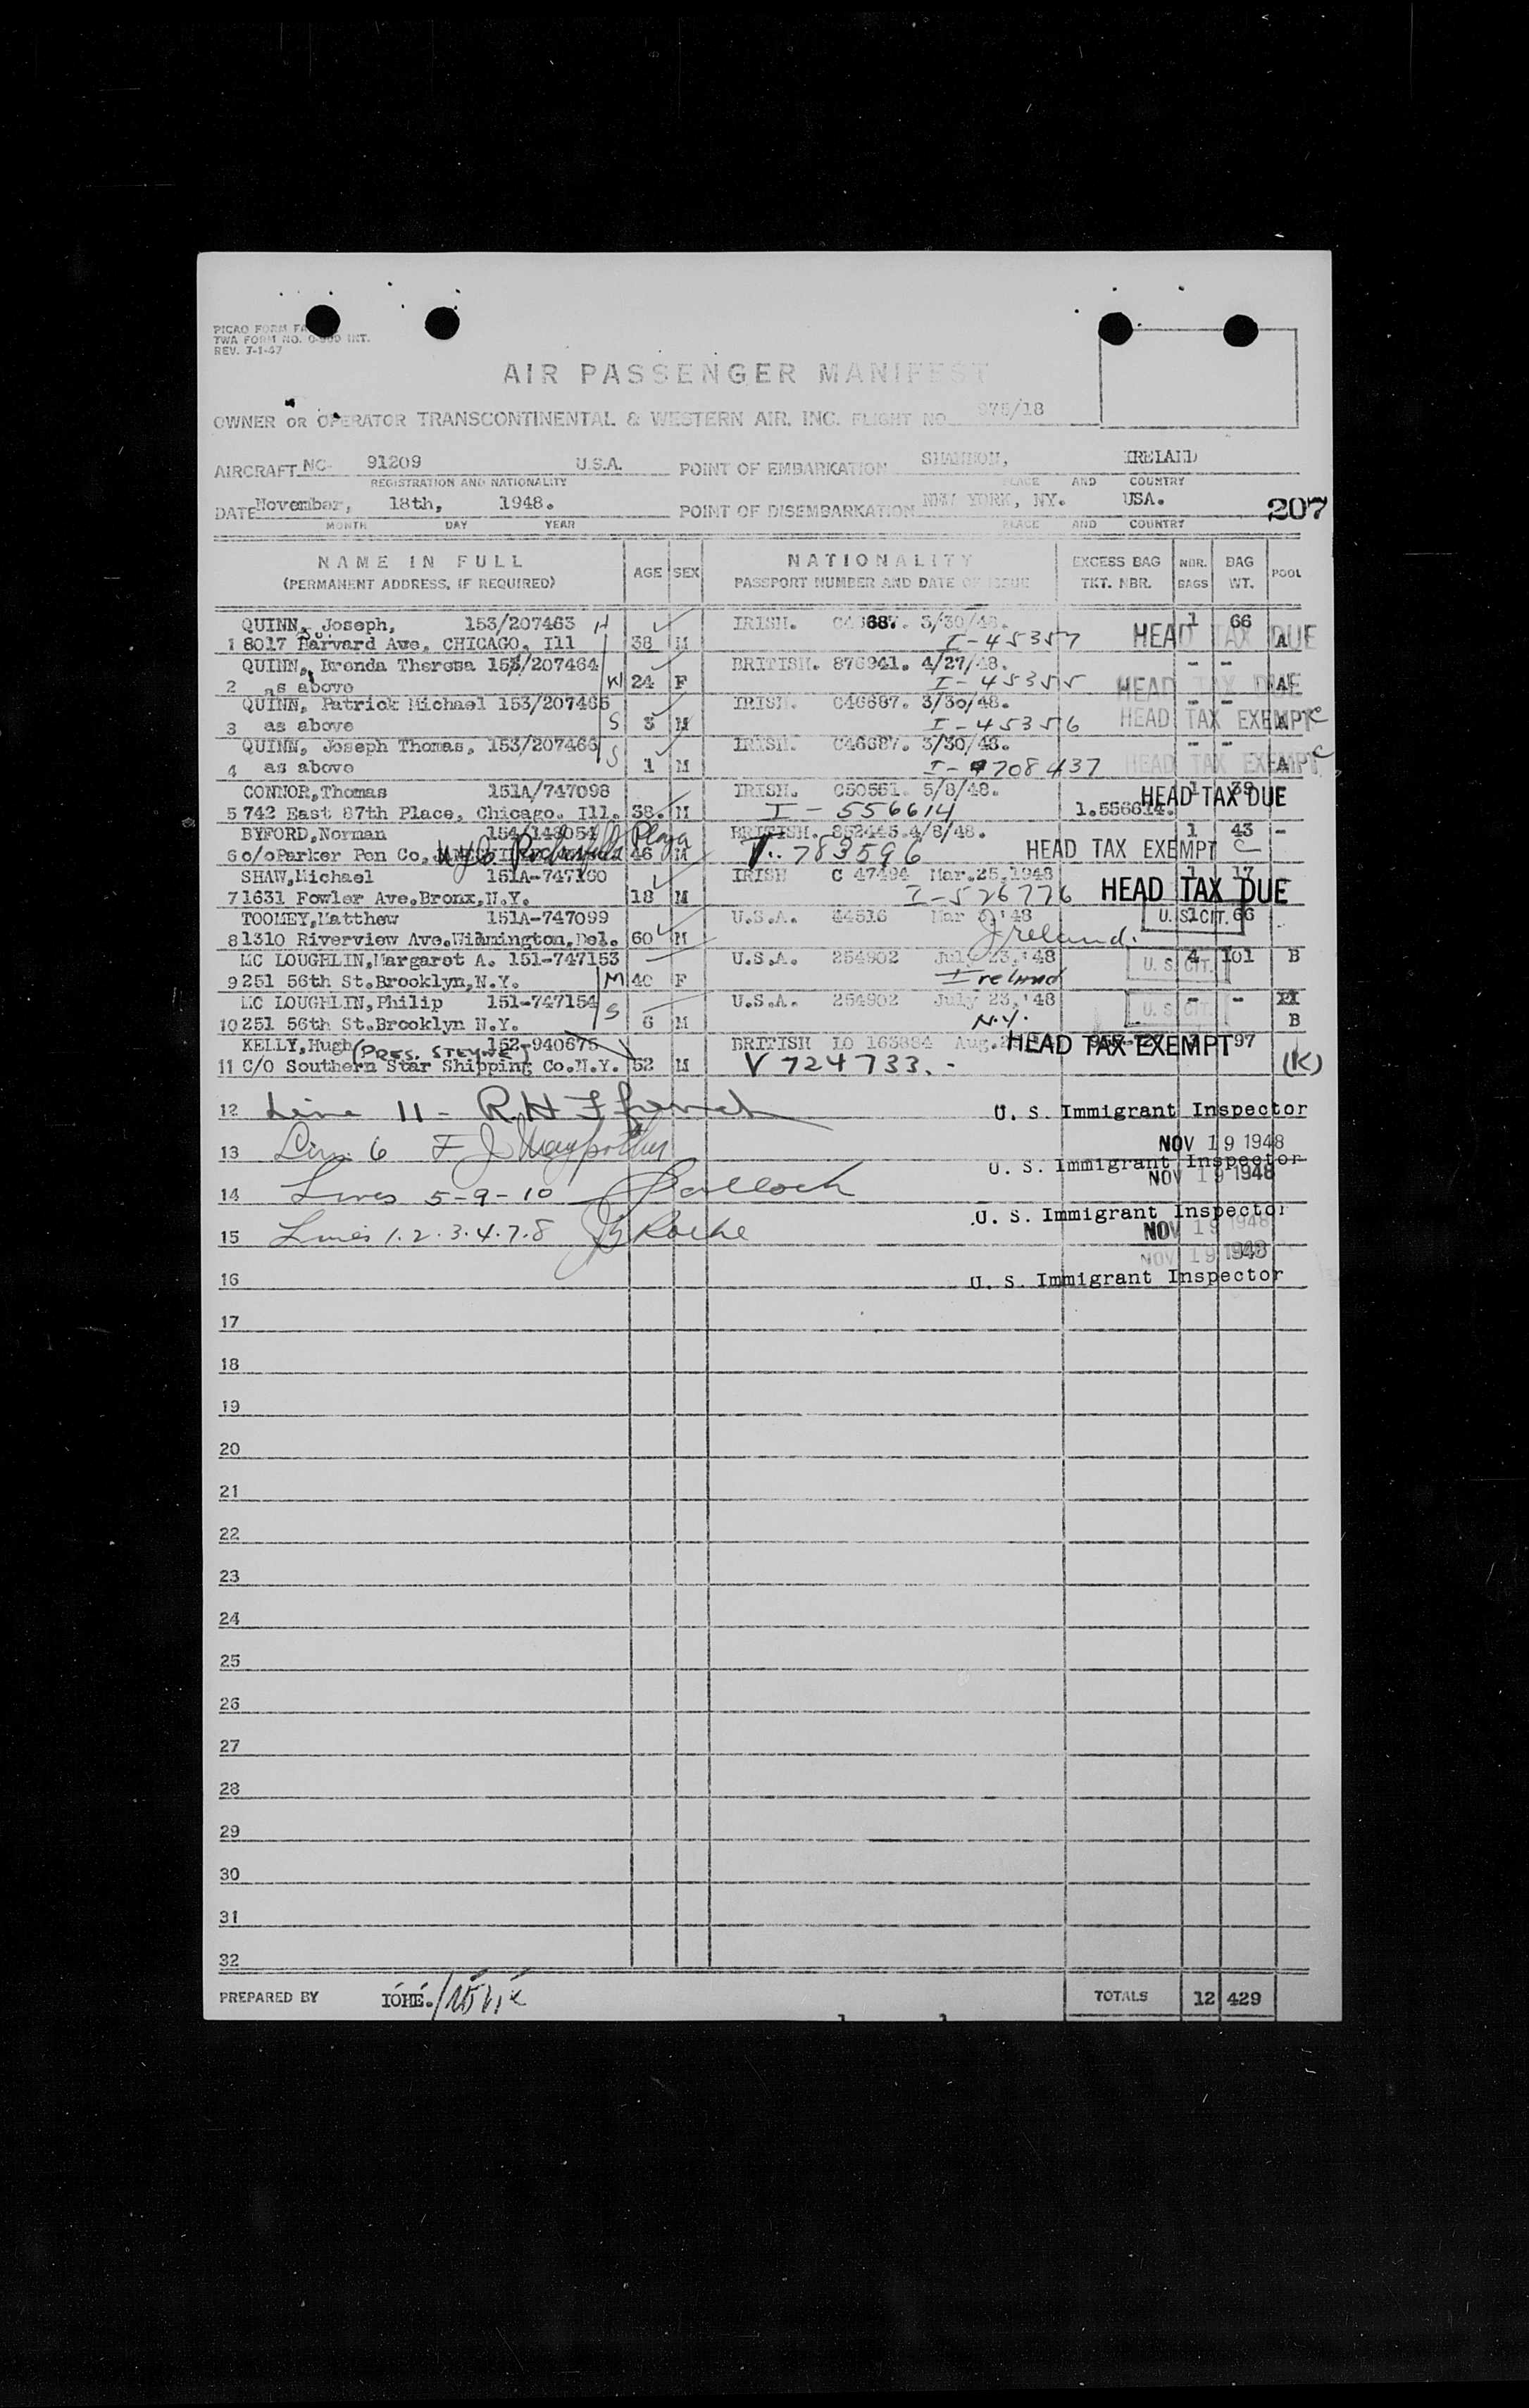 PICAO FORM
TWA FORM NO. INT.
REV. 7-1-47
AIR PASSENGER MANIFEST
OWNER OR OPERATOR TRANSCONTINENTAL & WESTERN AIR. INC. FLIGHT NO. /18
AIRCRAFT NC- 91209 U.S.A. POINT OF EMBARKATION SHANNON, IRELAND
REGISTRATION AND NATIONALITY PLACE AND COUNTRY
DATE November, 18th, 1948. POINT OF DISEMBARKATION NEW YORK, NY. USA. 207
MONTH DAY YEAR PLACE AND COUNTRY
NAME IN FULL AGE SEX NATIONALITY EXCESS BAG NBR. BAG POOL
(PERMANENT ADDRESS, IF REQUIRED) PASSPORT NUMBER AND DATE OF ISSUE TKT. NBR. BAGS WT.
QUINN, Joseph, 153/207463 H IRISH. C46687. 3/30/48. 1 66
1 8017 Harvard Ave, CHICAGO, Ill 38 M I-45357 HEAD TAX DUE A
QUINN, Brenda Theresa 153/207464 BRITISH. 876941. 4/27/48. - -
2 as above W 24 F I-45355 HEAD TAX DUE A
QUINN, Patrick Michael 153/207465 IRISH. C46687. 3/30/48. - -
3 as above S 3 M I-45356 HEAD TAX EXEMPT A C
QUINN, Joseph Thomas, 153/207466 IRISH. C46687. 3/30/48. - -
4 as above S 1 M I-9708437 HEAD TAX EXEMPT A C
CONNOR, Thomas 151A/747098 IRISH. C50551. 5/8/48. 1 39
5 742 East 87th Place, Chicago. Ill. 38. M I-556614 1.556614. HEAD TAX DUE
BYFORD, Norman 154/148054 Plaza BRITISH. 852445. 4/8/48. 1 43 -
6 c/o Parker Pen Co, 46 M 783596 HEAD TAX EXEMPT C
SHAW, Michael 151A-747160 IRISH C 47494 Mar.25,1948 1 17
7 1631 Fowler Ave. Bronx, N.Y. 18 M I-526776 HEAD TAX DUE
TOOMEY, Matthew 151A-747099 U.S.A. 44516 Mar '48 U. S. CIT. 1 66
8 1310 Riverview Ave. Wilmington, Del. 60 M Ireland.
MC LOUGHLIN, Margaret A. 151-747153 U.S.A. 254902 July 23,'48 4 101 B
9 251 56th St. Brooklyn, N.Y. M 40 F Ireland U. S. CIT.
MC LOUGHLIN, Philip 151-747154 U.S.A. 254902 July 23,'48 - -
10 251 56th St. Brooklyn N.Y. S 6 M N.Y. U. S. CIT. B
KELLY, Hugh (PRES. STEVNE) 152-940675 BRITISH LO Aug. HEAD TAX EXEMPT 97
11 C/O Southern Star Shipping Co. N.Y. 52 M V 724733. - (K)
12 Line 11 - R.H. Ffrench U. S. Immigrant Inspector
NOV 19 1948
13 Line 6 F J U. S. Immigrant Inspector
NOV 19 1948
14 Lines 5-9-10 U. S. Immigrant Inspector
NOV 19 1948
15 Lines 1.2.3.4.7.8 Roche
NOV 19 1948
16 U. S. Immigrant Inspector
17
18
19
20
21
22
23
24
25
26
27
28
29
30
31
32
PREPARED BY IOHE. TOTALS 12 429